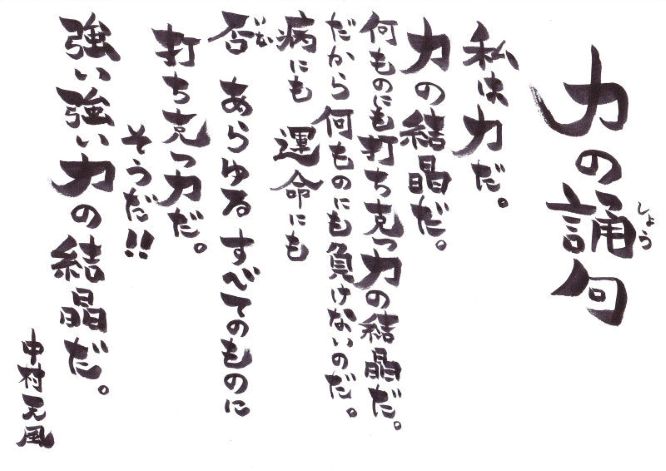 力の誦句
しょう
私は力だ。
力の結晶だ。
何ものにも打ち克つ力の結晶だ。
だから何ものにも負けないのだ。
病にも 運命にも
否 あらゆる すべてのものに
むむ
打ち克つ力だ。
そうだ!!
強い強い力の結晶だ。
中村天風